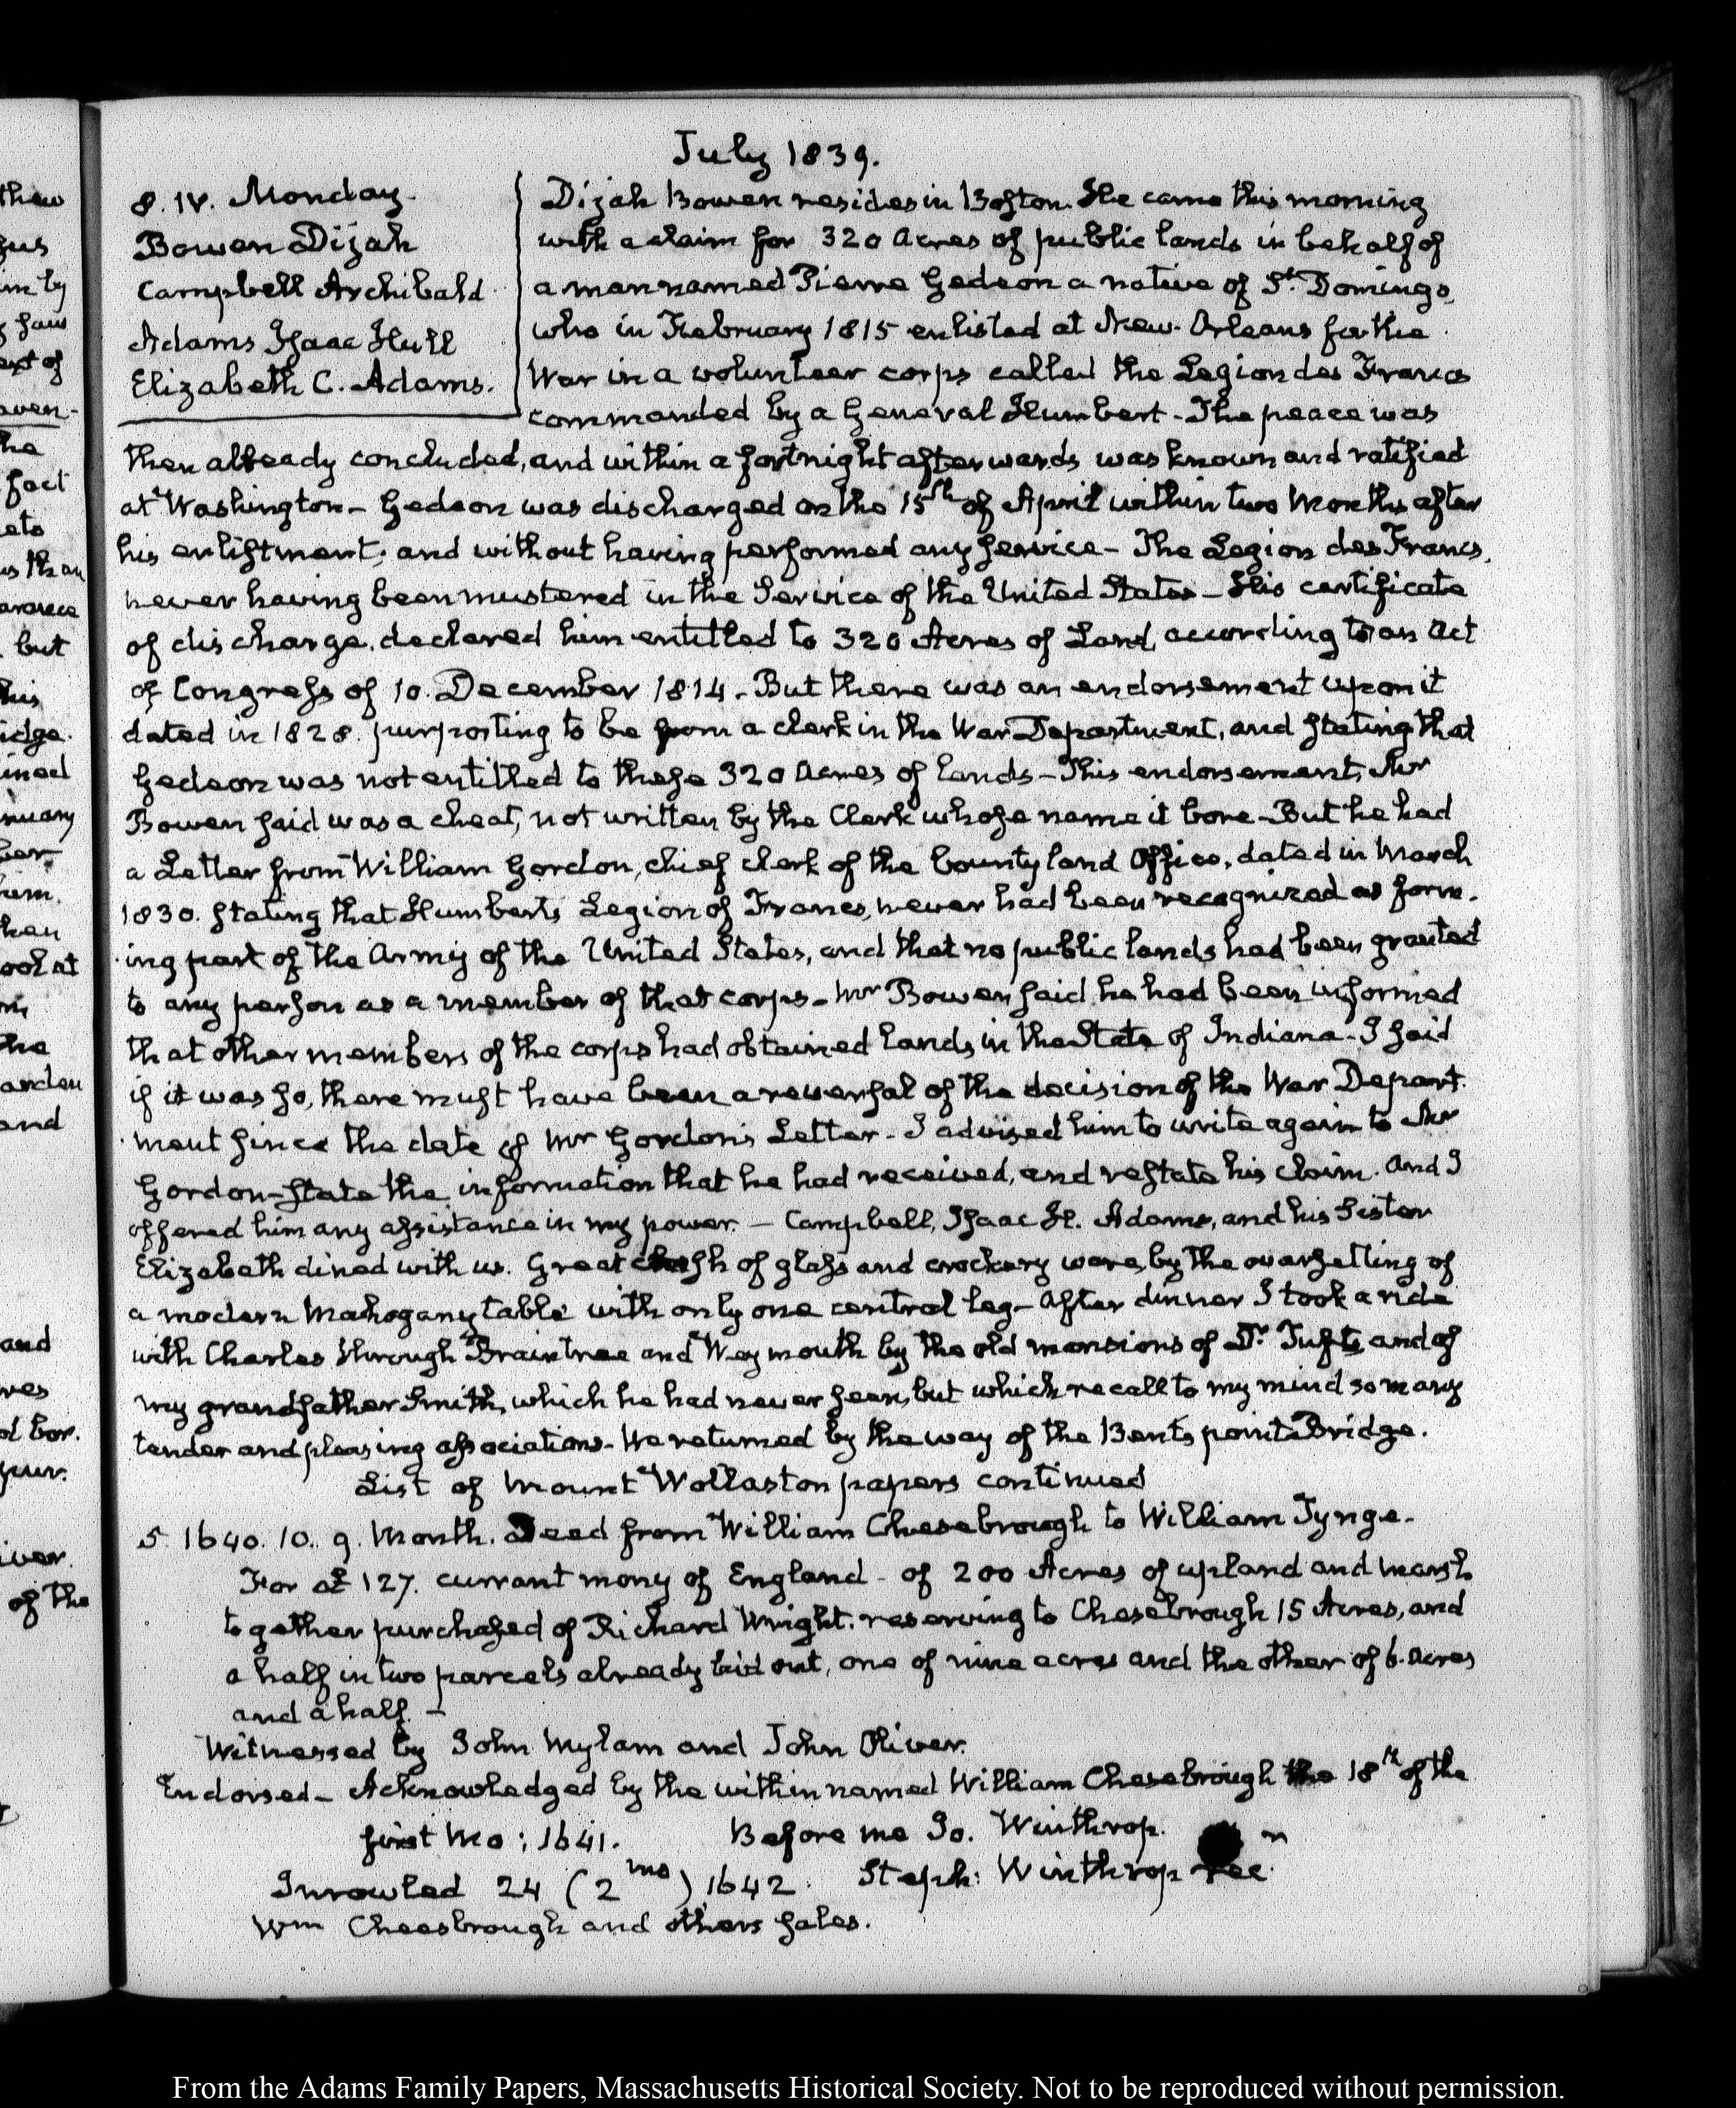 July 1839.
8. IV. Monday.
Bowen Dijah
Campbell Archibald
Adams Isaac Hull
Elizabeth C. Adams.
Dijah Bowen resides in Boston. He came this morning
with a claim for 320 Acres of public lands in behalf of
a man named Pierre Gedeon a native of St. Domingo,
who in February 1815 enlisted at New-Orleans for the
War in a volunteer corps called the Legion des Francs
commanded by a General Humbert - The peace was
then already concluded, and within a fortnight afterwards was known and ratified
at Washington - Gedeon was discharged on the 15th of April within two Months after
his enlistment; and without having performed any service - The Legion des Francs,
never having been mustered in the Service of the United States - His certificate
of discharge, declared him entitled to 320 Acres of Land, according to an Act
of Congress of 10. December 1814. But there was an endorsement upon it
dated in 1828. purporting to be from a clerk in the War Department, and stating that
Gedeon was not entitled to these 320 Acres of lands - This endorsement, Mr
Bowen said was a cheat, not written by the Clerk whose name it bore - But he had
a Letter from William Gordon, chief clerk of the bounty land Office, dated in March
1830. stating that Humbert's Legion of Francs, never had been recognized as form-
ing part of the Army of the United States, and that no public lands had been granted
to any person as a member of that corps - Mr Bowen said he had been informed
that other members of the corps had obtained lands in the State of Indiana - I said
if it was so, there must have been a reversal of the decision of the War Depart-
ment since the date of Mr Gordon's Letter - I advised him to write again to Mr
Gordon - State the information that he had received, and restate his claim. And I
offered him any assistance in my power. - Campbell, Isaac H. Adams, and his Sister
Elizabeth dined with us. Great crash of glass and crockery ware, by the oversetting of
a modern Mahogany table with only one central leg - After dinner I took a ride
with Charles through Braintree and Weymouth by the old mansions of Dr. Tufts and of
my grandfather Smith, which he had never seen, but which recall to my mind so many
tender and pleasing associations - We returned by the way of the Bents point Bridge.
List of Mount Wollaston papers continued
5. 1640. 10.. 9. Month. Deed from William Chesebrough to William Tynge.
For £127. currant mony of England - of 200 Acres of upland and marsh
together purchased of Richard Wright. reserving to Chesebrough 15 Acres, and
a half in two parcels already laid out, one of nine acres and the other of 6. Acres
and a half. -
Witnessed by John Mylam and John Oliver.
Endorsed - Acknowledged by the within named William Chesebrough the 18th of the
first Mo: 1641. Before me Jo. Winthrop.
Inrowled 24 (2mo) 1642. Steph: Winthrop Rec
Wm Cheesbrough and others sales.